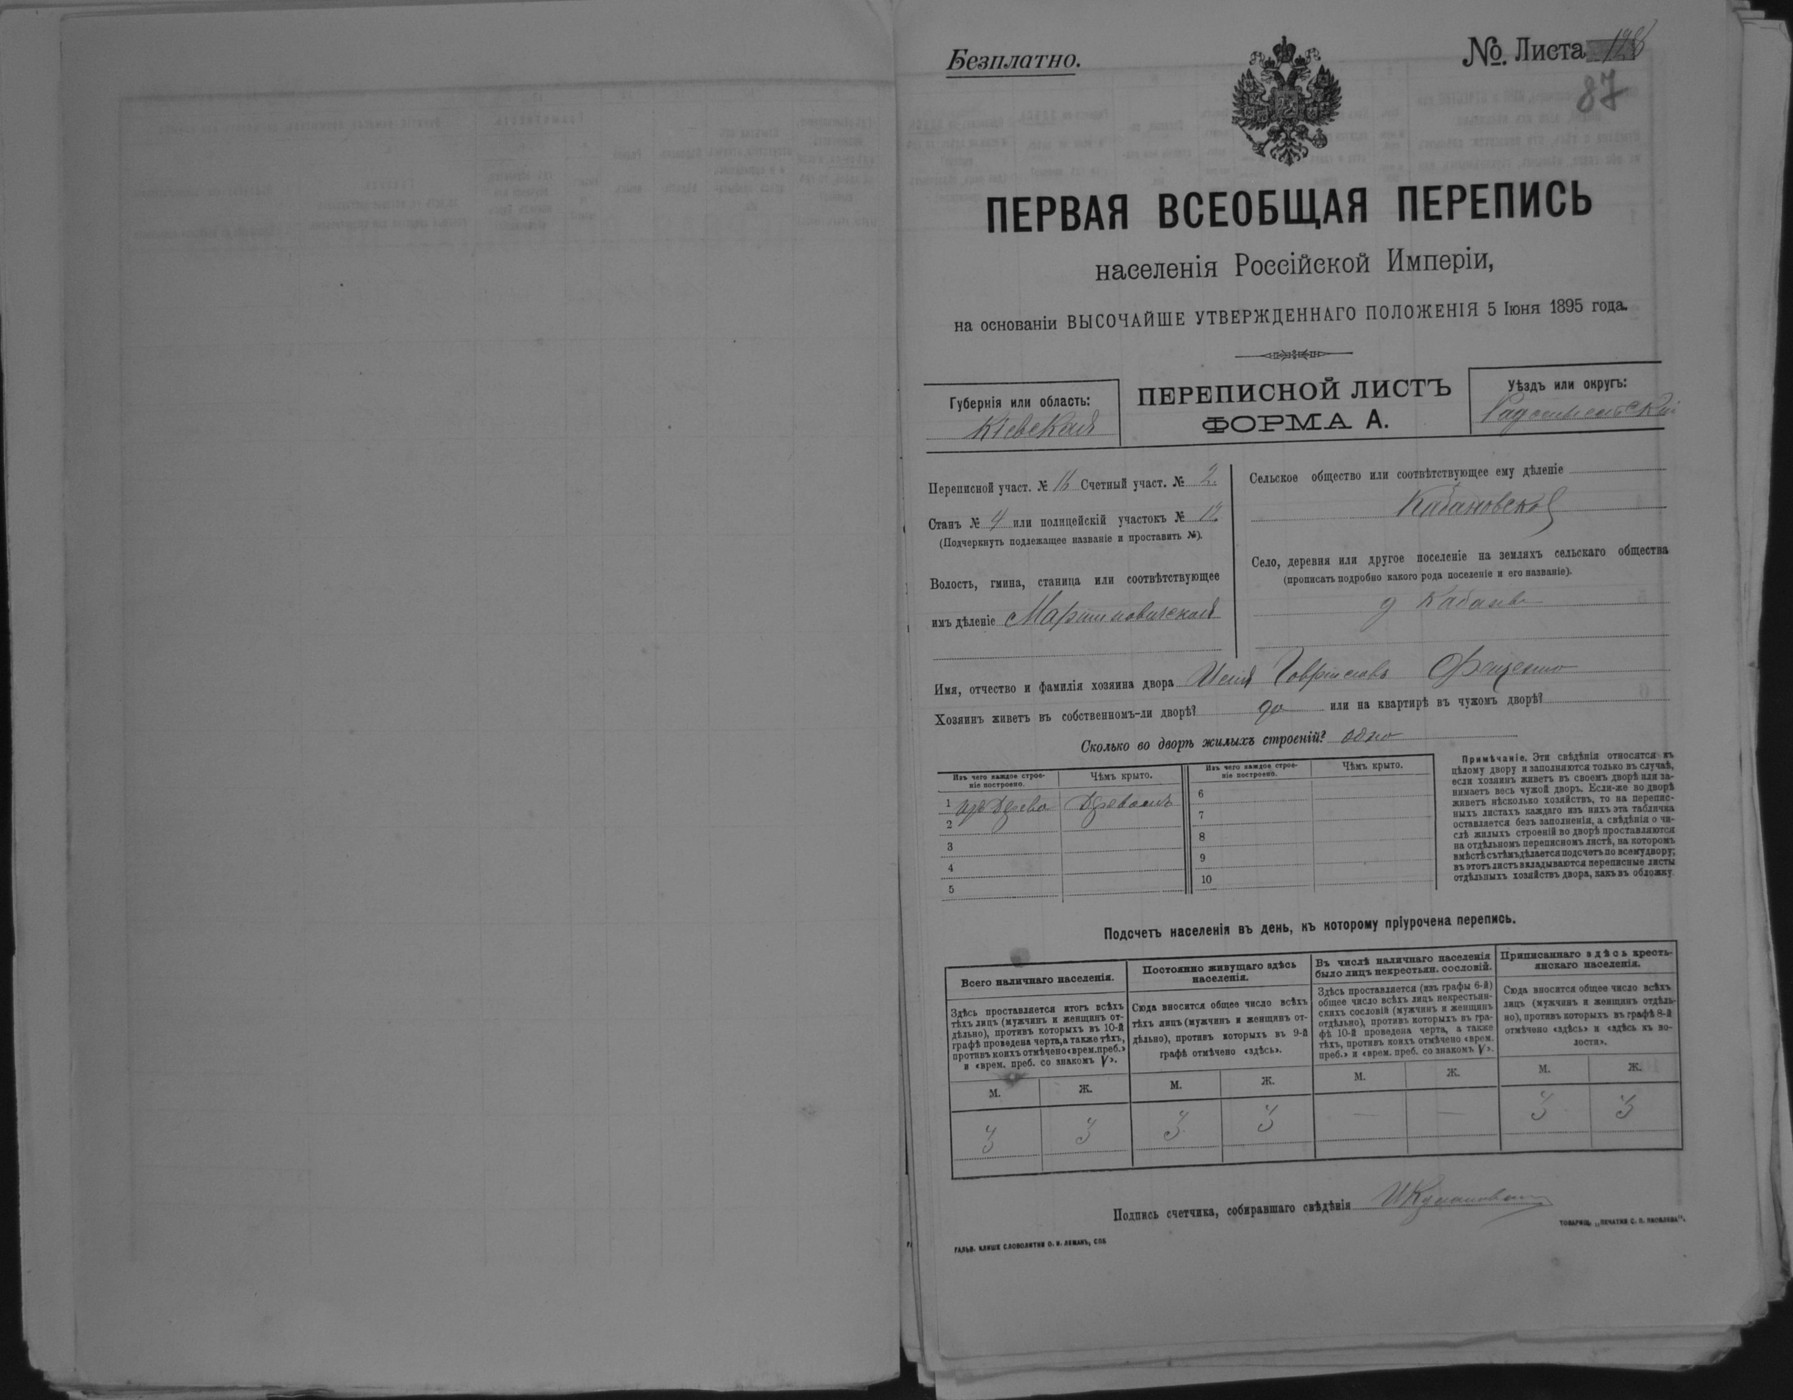 Безплатно.
№ Листа 128
87
ПЕРВАЯ ВСЕОБЩАЯ ПЕРЕПИСЬ
населенія Россійской Имперіи,
на основаніи ВЫСОЧАЙШЕ УТВЕРЖДЕННАГО ПОЛОЖЕНІЯ 5 Іюня 1895 года.
Губернія или область:
Кіевская
ПЕРЕПИСНОЙ ЛИСТЪ
ФОРМА А.
Уѣздъ или округъ:
Радомысльскій
Переписной участ. № 16 Счетный участ. № 2.
Станъ № 4 или полицейскій участокъ № 12
(Подчеркнуть подлежащее названіе и проставить №).
Волость, гмина, станица или соотвѣтствующее
имъ дѣленіе Мартиновичская
Сельское общество или соотвѣтствующее ему дѣленіе
Кабановское
Село, деревня или другое поселеніе на земляхъ сельскаго общества
(прописать подробно какого рода поселеніе и его названіе).
д Кабаны
Имя, отчество и фамилія хозяина двора
Хозяинъ живетъ въ собственномъ-ли дворѣ? да или на квартирѣ въ чужомъ дворѣ?
Сколько во дворѣ жилыхъ строеній? одно
Изъ чего каждое строе-
ніе построено.
Чѣмъ крыто.
1 изъ дерева
2
3
4
5
Изъ чего каждое строе-
ніе построено.
Чѣмъ крыто.
6
7
8
9
10
Примѣчаніе. Эти свѣдѣнія относятся къ
цѣлому двору и заполняются только въ случаѣ,
если хозяинъ живетъ въ своемъ дворѣ или за-
нимаетъ весь чужой дворъ. Если-же во дворѣ
живетъ нѣсколько хозяйствъ, то на перепис-
ныхъ листахъ каждаго изъ нихъ эта табличка
оставляется безъ заполненія, а свѣдѣнія о чи-
слѣ жилыхъ строеній во дворѣ проставляются
на отдѣльномъ переписномъ листѣ, на которомъ
вмѣстѣ съ тѣмъ дѣлается подсчетъ по всему двору;
въ этотъ листъ вкладываются переписные листы
отдѣльныхъ хозяйствъ двора, какъ въ обложку.
Подсчетъ населенія въ день, къ которому пріурочена перепись.
Всего наличнаго населенія.
Здѣсь проставляется итогъ всѣхъ
тѣхъ лицъ (мужчинъ и женщинъ от-
дѣльно), противъ которыхъ въ 10-й
графѣ проведена черта, а также тѣхъ,
противъ коихъ отмѣчено «врем. преб.»
и «врем. преб. со знакомъ V».
М. Ж.
3 3
Постоянно живущаго здѣсь
населенія.
Сюда вносится общее число всѣхъ
тѣхъ лицъ (мужчинъ и женщинъ от-
дѣльно), противъ которыхъ въ 9-й
графѣ отмѣчено «здѣсь».
М. Ж.
3 3
Въ числѣ наличнаго населенія
было лицъ некрестьян. сословій.
Здѣсь проставляется (изъ графы 6-й)
общее число всѣхъ лицъ некрестьян-
скихъ сословій (мужчинъ и женщинъ
отдѣльно), противъ которыхъ въ гра-
фѣ 10-й проведена черта, а также
тѣхъ, противъ коихъ отмѣчено «врем.
преб.» и «врем. преб. со знакомъ V».
М. Ж.
— —
Приписаннаго здѣсь кресть-
янскаго населенія.
Сюда вносится общее число всѣхъ
лицъ (мужчинъ и женщинъ отдѣль-
но), противъ которыхъ въ графѣ 8-й
отмѣчено «здѣсь» и «здѣсь въ во-
лости».
М. Ж.
3 3
Подпись счетчика, собиравшаго свѣдѣнія
ГАЛЬВ. КЛИШЕ СЛОВОЛИТНИ О. И. ЛЕМАНЪ, СПБ
ТОВАРИЩ. „ПЕЧАТНЯ С. П. ЯКОВЛЕВА“.